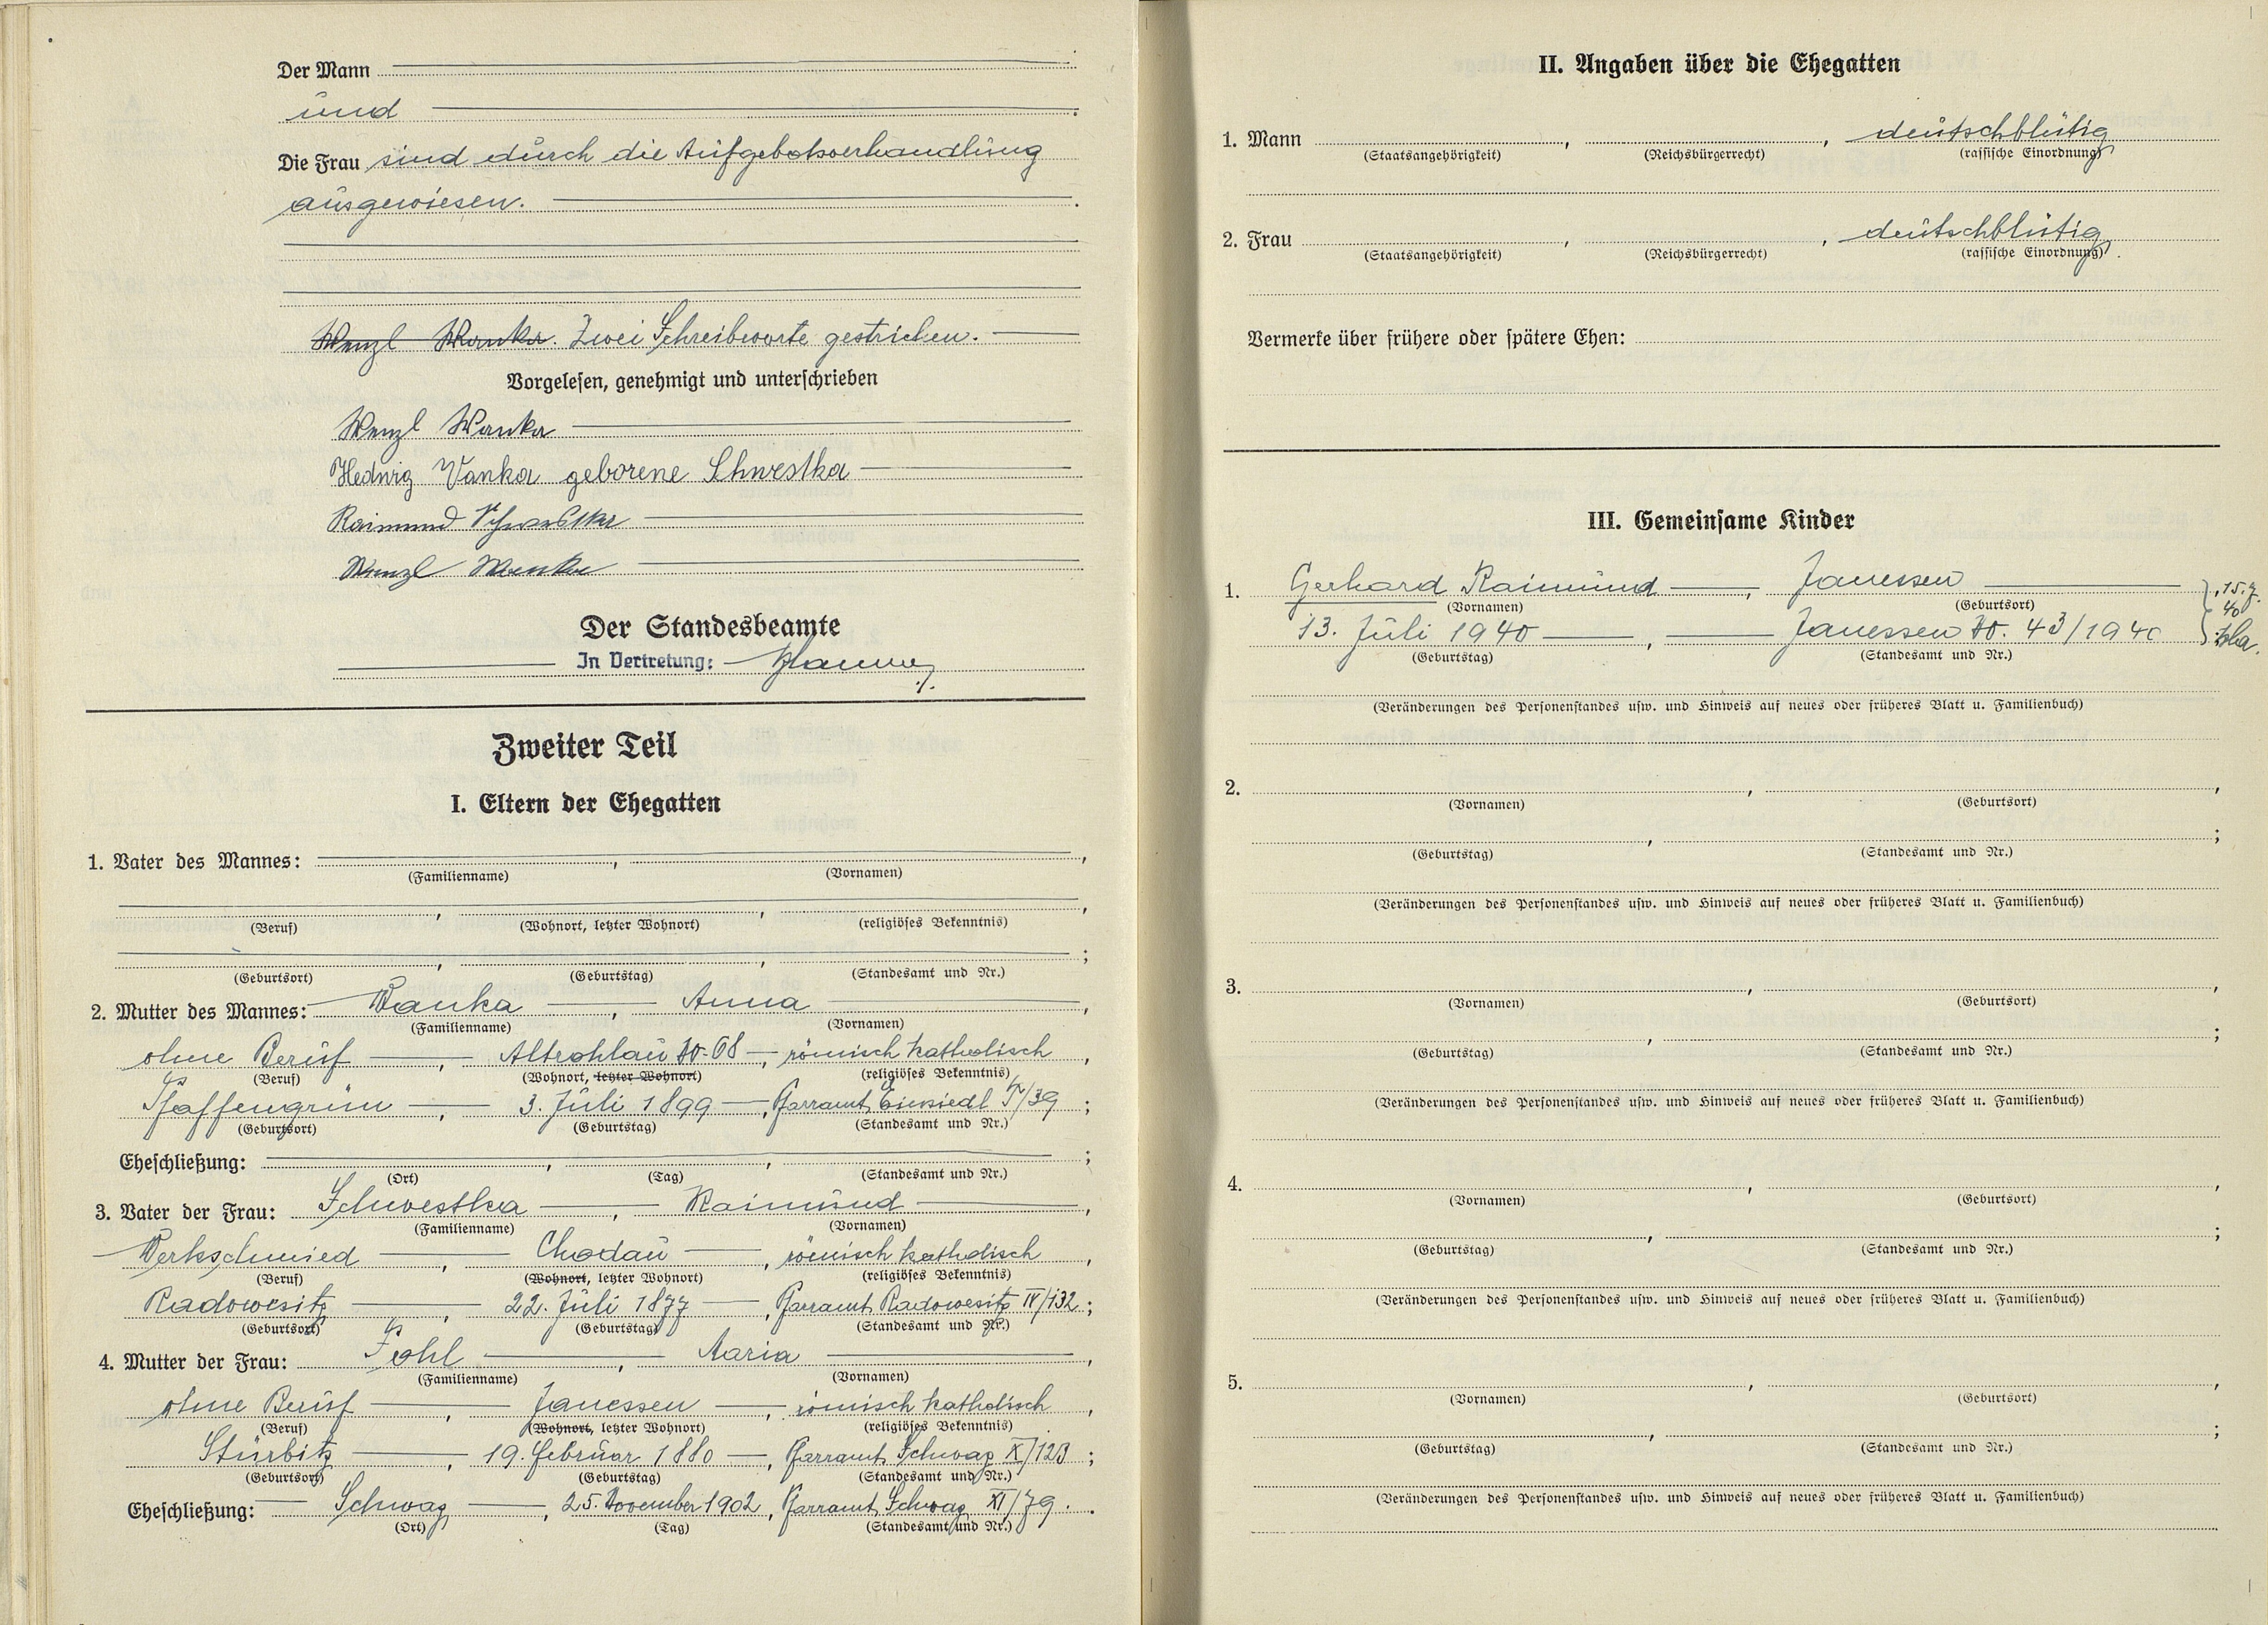 Der Mann
und
Die Frau sind durch die Aufgebotsverhandlung
ausgewiesen.
Wenzl Wanka. Zwei Schreibworte gestrichen.
Vorgelesen, genehmigt und unterschrieben
Wenzl Wanka
Hedwig Vanka geborene Schwestka
Raimund Schwestka
Wenzl Wanka
Der Standesbeamte
In Vertretung:
Zweiter Teil
I. Eltern der Ehegatten
1. Vater des Mannes: , ,
(Familienname) (Vornamen)
, , ,
(Beruf) (Wohnort, letzter Wohnort) (religiöses Bekenntnis)
, , ;
(Geburtsort) (Geburtstag) (Standesamt und Nr.)
2. Mutter des Mannes: Wanka , Anna ,
(Familienname) (Vornamen)
ohne Beruf , Altrohlau No. 68 , römisch katholisch ,
(Beruf) (Wohnort, letzter Wohnort) (religiöses Bekenntnis)
Pfaffengrün , 3. Juli 1899 , Pfarramt Einsiedl /39 ;
(Geburtsort) (Geburtstag) (Standesamt und Nr.)
Eheschließung: , , ;
(Ort) (Tag) (Standesamt und Nr.)
3. Vater der Frau: Schwestka , Raimund ,
(Familienname) (Vornamen)
Werkschmied , Chodau , römisch katholisch ,
(Beruf) (Wohnort, letzter Wohnort) (religiöses Bekenntnis)
Radowesitz , 22. Juli 1877 , Pfarramt Radowesitz IV/132 ;
(Geburtsort) (Geburtstag) (Standesamt und Nr.)
4. Mutter der Frau: , Maria ,
(Familienname) (Vornamen)
ohne Beruf , Janessen , römisch katholisch ,
(Beruf) (Wohnort, letzter Wohnort) (religiöses Bekenntnis)
Stürbitz , 19. Februar 1880 , Pfarramt Schwaz X/123 ;
(Geburtsort) (Geburtstag) (Standesamt und Nr.)
Eheschließung: Schwaz , 25. November 1902 , Pfarramt Schwaz XI/79 .
(Ort) (Tag) (Standesamt und Nr.)
II. Angaben über die Ehegatten
1. Mann , , deutschblütig
(Staatsangehörigkeit) (Reichsbürgerrecht) (rassische Einordnung)
2. Frau , , deutschblütig
(Staatsangehörigkeit) (Reichsbürgerrecht) (rassische Einordnung) .
Vermerke über frühere oder spätere Ehen:
III. Gemeinsame Kinder
1. Gerhard Raimund , Janessen , 15.7.
(Vornamen) (Geburtsort) 40
13. Juli 1940 , Janessen No. 43/1940
(Geburtstag) (Standesamt und Nr.)
(Veränderungen des Personenstandes usw. und Hinweis auf neues oder früheres Blatt u. Familienbuch)
2. , ,
(Vornamen) (Geburtsort)
, ;
(Geburtstag) (Standesamt und Nr.)
(Veränderungen des Personenstandes usw. und Hinweis auf neues oder früheres Blatt u. Familienbuch)
3. , ,
(Vornamen) (Geburtsort)
, ;
(Geburtstag) (Standesamt und Nr.)
(Veränderungen des Personenstandes usw. und Hinweis auf neues oder früheres Blatt u. Familienbuch)
4. , ,
(Vornamen) (Geburtsort)
, ;
(Geburtstag) (Standesamt und Nr.)
(Veränderungen des Personenstandes usw. und Hinweis auf neues oder früheres Blatt u. Familienbuch)
5. , ,
(Vornamen) (Geburtsort)
, ;
(Geburtstag) (Standesamt und Nr.)
(Veränderungen des Personenstandes usw. und Hinweis auf neues oder früheres Blatt u. Familienbuch)